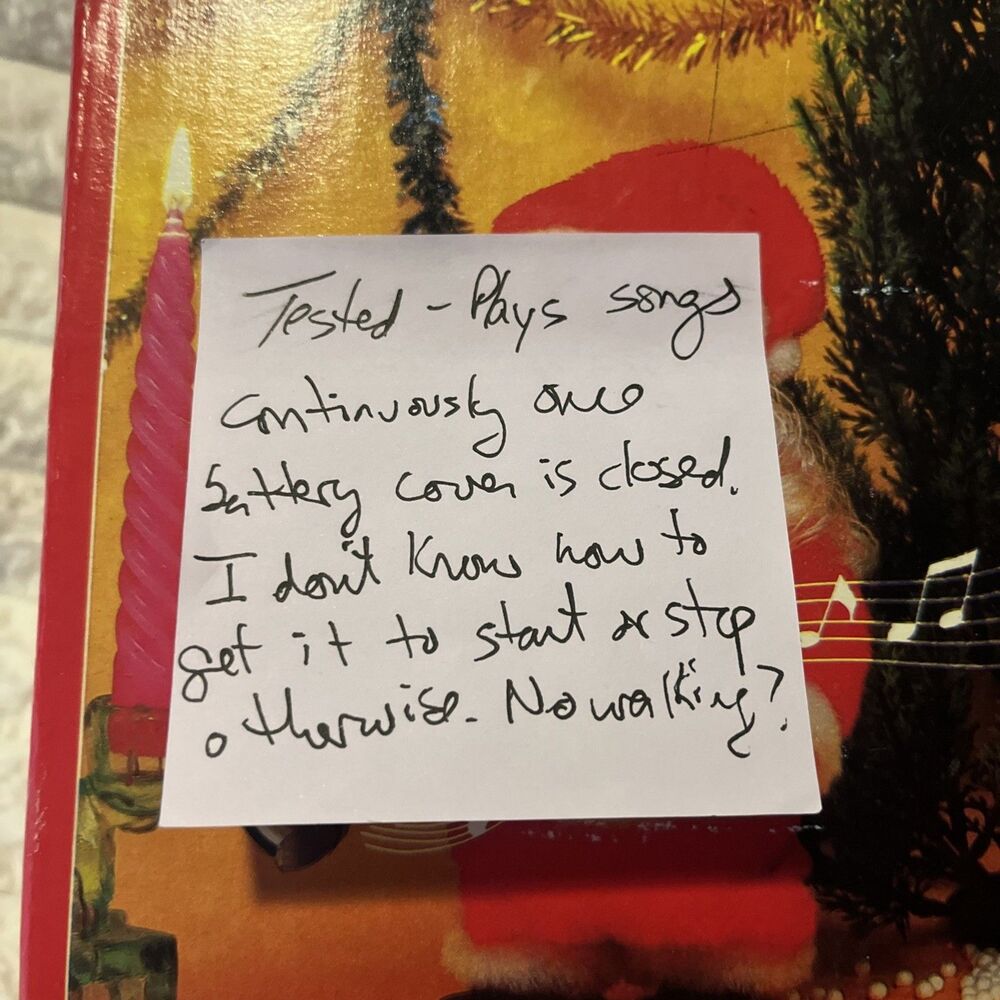 Tested - Plays songs
continuously once
battery cover is closed.
I don't know how to
get it to start or stop
otherwise. No walking?